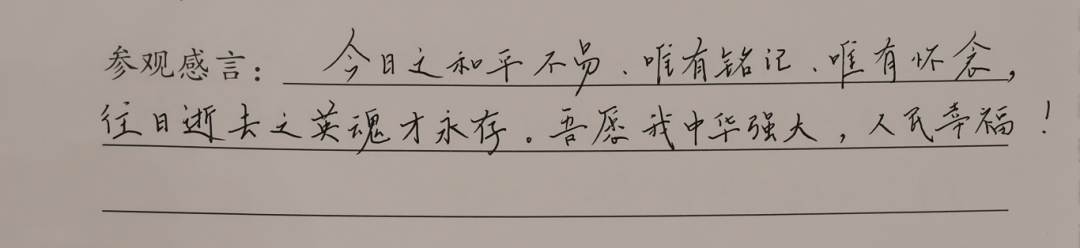 参观感言：今日之和平不易、唯有铭记、唯有怀念，
往日逝去之英魂才永存。吾愿我中华强大，人民幸福！